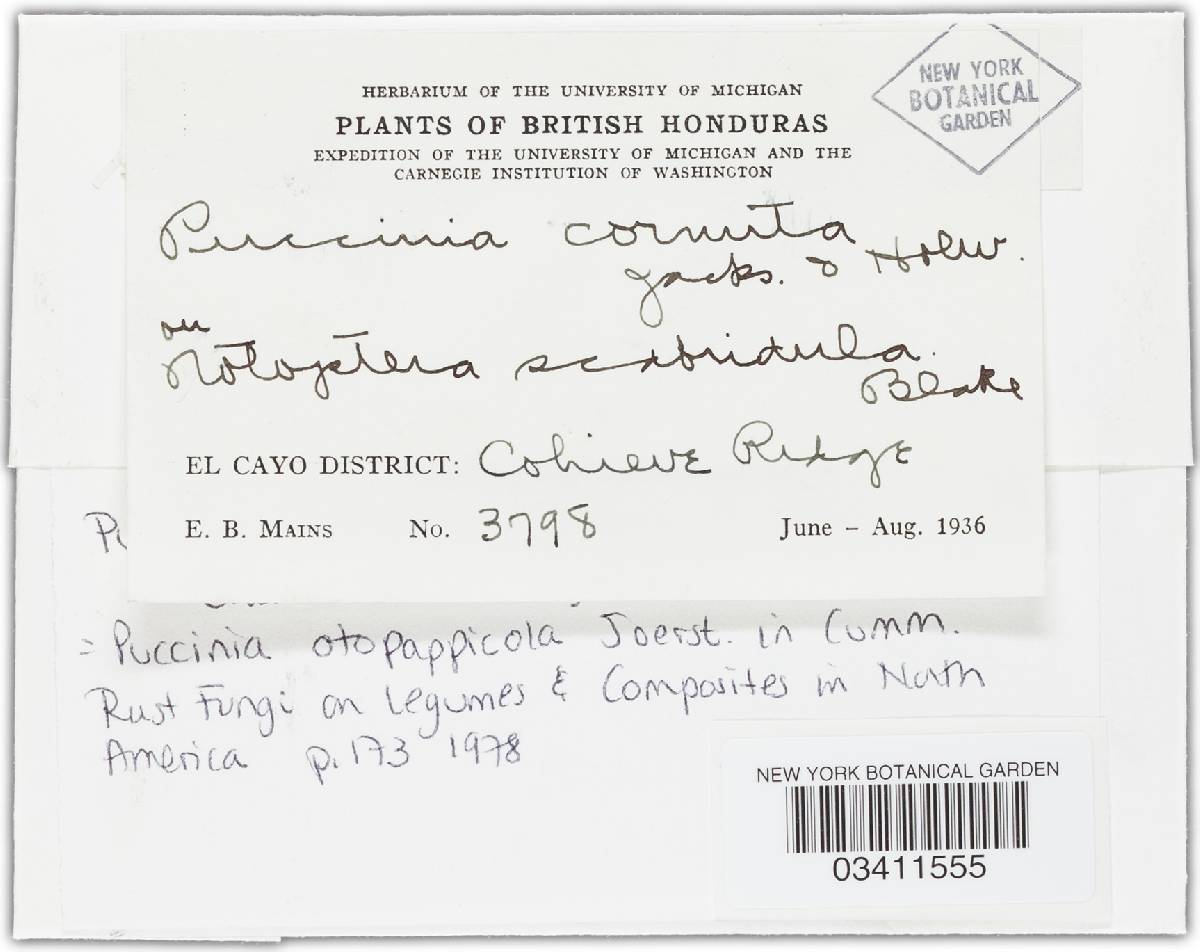 HERBARIUM OF THE UNIVERSITY OF MICHIGAN
PLANTS OF BRITISH HONDURAS
EXPEDITION OF THE UNIVERSITY OF MICHIGAN AND THE
CARNEGIE INSTITUTION OF WASHINGTON
NEW YORK
BOTANICAL
GARDEN
Puccinia cornuta
Jacks. & Holw.
on
Notoptera scabridula
Blake
EL CAYO DISTRICT: Cohieve Ridge
E. B. MAINS No. 3798 June - Aug. 1936
= Puccinia otopappicola Joerst. in Cumm.
Rust Fungi on Legumes & Composites in North
America p. 173 1978
NEW YORK BOTANICAL GARDEN
03411555